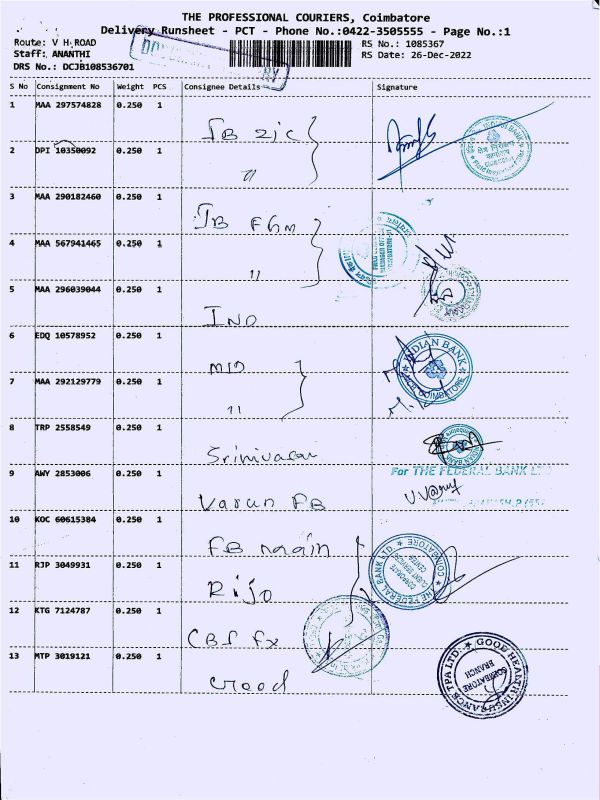 THE PROFESSIONAL COURIERS, Coimbatore
Delivery Runsheet - PCT - Phone No.:0422-3505555 - Page No.:1
Route: V H ROAD
RS No.: 1085367
Staff: ANANTHI
RS Date: 26-Dec-2022
DRS No.: DCJB108536701
S No Consignment No Weight PCS Consignee Details Signature
1 MAA 297574828 0.250 1
2 DPI 10350092 0.250 1 "
INDIAN BANK
3 MAA 290182460 0.250 1
4 MAA 567941465 0.250 1 "
5 MAA 296039044 0.250 1 IND
6 EDQ 10578952 0.250 1 MID
INDIAN BANK
COIMBATORE
7 MAA 292129779 0.250 1 "
8 TRP 2558549 0.250 1 Srinivasan
9 AWY 2853006 0.250 1 Varun FB
For THE FEDERAL BANK LTD
10 KOC 60615384 0.250 1 FB main
THE FEDERAL BANK LTD. COIMBATORE
CORPORATE
CLIENT SERVICES
CENTRE
11 RJP 3049931 0.250 1 Rijo
12 KTG 7124787 0.250 1 CBF FX
13 MTP 3019121 0.250 1 Good
GOOD HEALTH INSURANCE TPA LTD.
COIMBATORE
BRANCH